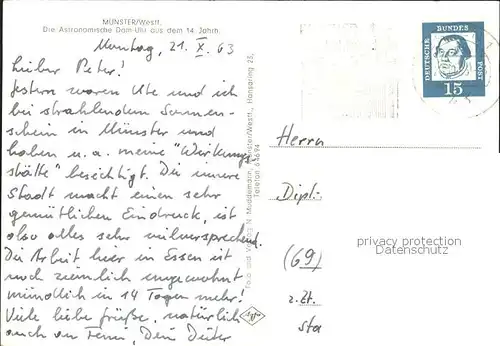 MÜNSTER/Westf.
Die Astronomische Dom-Uhr aus dem 14. Jahrh.
Montag, 21. X. 63
Lieber Peter!
Gestern waren Ute und ich
bei strahlendem Sonnen-
schein in Münster und
haben u. a. meine "Wirkungs-
stätte" besichtigt. Die innere
Stadt macht einen sehr
gemütlichen Eindruck, ist
also alles sehr vielversprechend.
Die Arbeit hier in Essen ist
noch ziemlich ungewohnt
mündlich in 14 Tagen mehr!
Viele liebe Grüße, natürlich
auch an Fenni, Dein Dieter
Foto und Verlag N. Muddemann, Münster/Westf., Hansaring 25,
Telefon 64694
Agfa
DEUTSCHE BUNDES POST
15
Herrn
Dipl.-
(69)
z. Zt.
Sta
privacy protection
Datenschutz